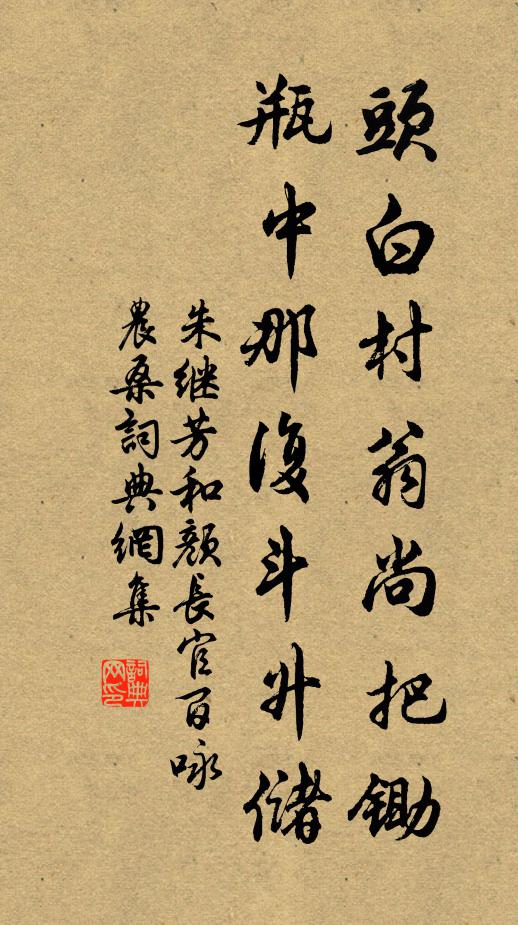 頭白村翁尚把鋤
瓶中那復斗升儲
朱继芳和顏長官百咏
農桑詞典網集
詞典网印